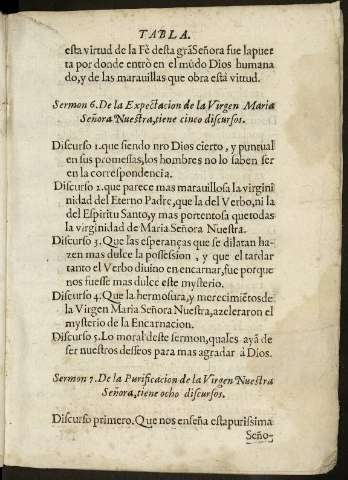 TABLA.
esta virtud de la Fè desta grãSeñora fue lapuer
ta por donde entrò en el mũdo Dios humana
do, y de las marauillas que obra està virtud.
Sermon 6. De la Expectacion de la Virgen Maria
Señora Nuestra, tiene cinco discursos.
Discurso 1. que siendo nro Dios cierto, y puntual
en sus promessas, los hombres no lo saben ser
en la correspondencia.
Discurso 2. que parece mas marauillosa la virgini
nidad del Eterno Padre, que la del Verbo, ni la
del Espiritu Santo, y mas portentosa quetodas
la virginidad de Maria Señora Nuestra.
Discurso 3. Que las esperanças que se dilatan ha-
zen mas dulce la possession, y que el tardar
tanto el Verbo diuino en encarnar, fue porque
nos fuesse mas dulce este mysterio.
Discurso 4. Que la hermosura, y merecimiẽtos de
la Virgen Maria Señora Nuestra, azeleraron el
mysterio de la Encarnacion.
Discurso 5. Lo moral deste sermon, quales ayã de
ser nuestros desseos para mas agradar à Dios.
Sermon 7. De la Purificacion de la Virgen Nuestra
Señora, tiene ocho discursos.
Discurso primero. Que nos enseña esta purissima
Seño-